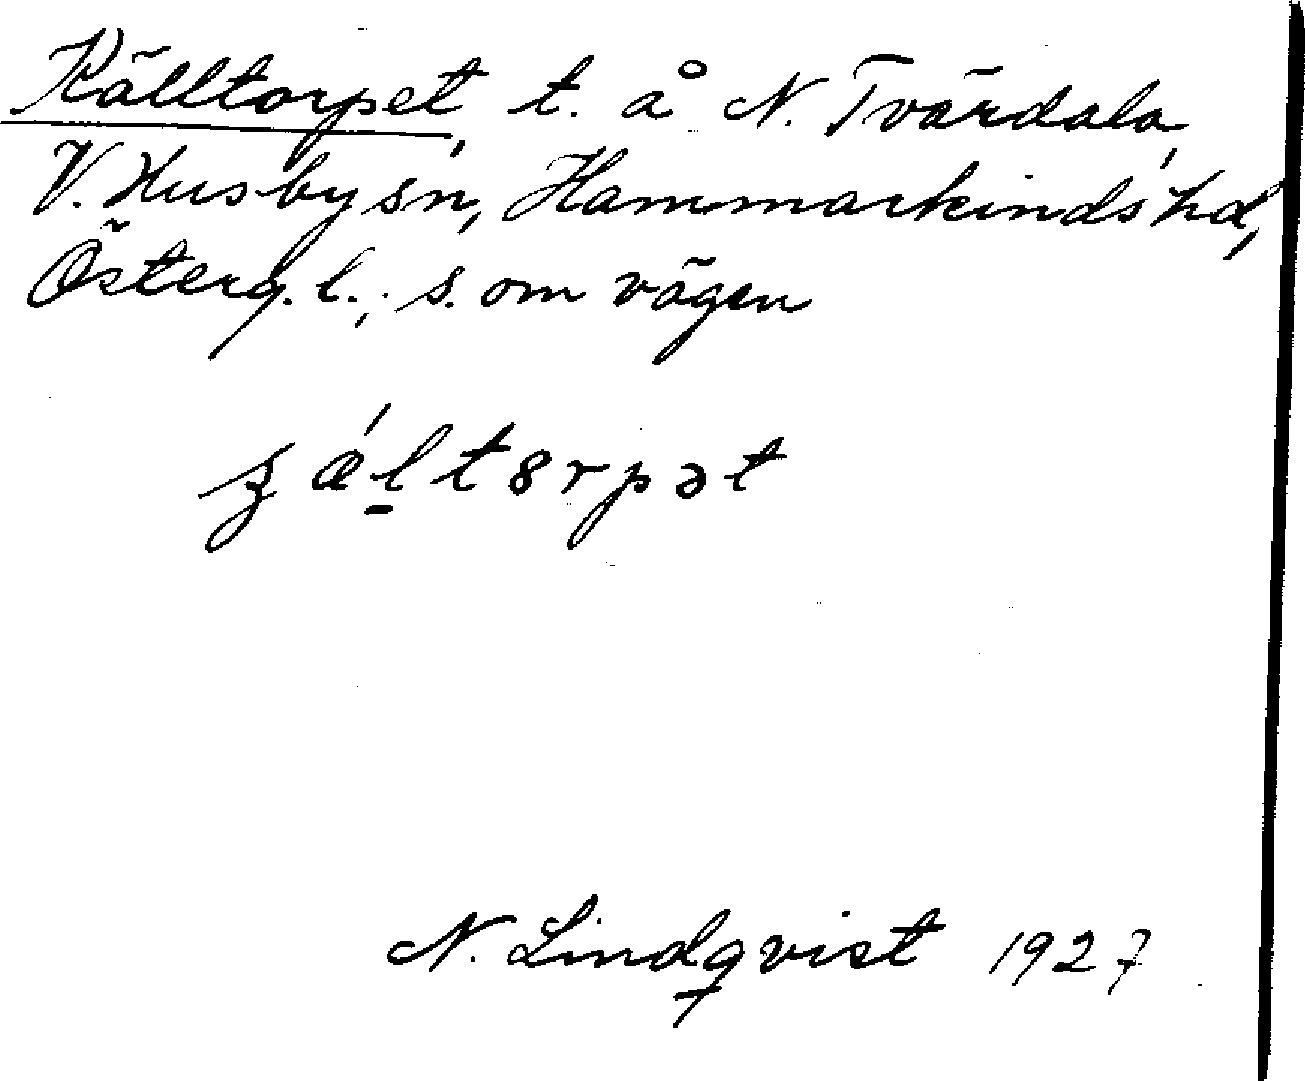 Källtorpet, t. å N. Tvärdala,
V. Husby sn, Hammarkinds hd,
Österg. l.; s. om vägen
ʒ ǽl̠t8rpət
N. Lindqvist 1927